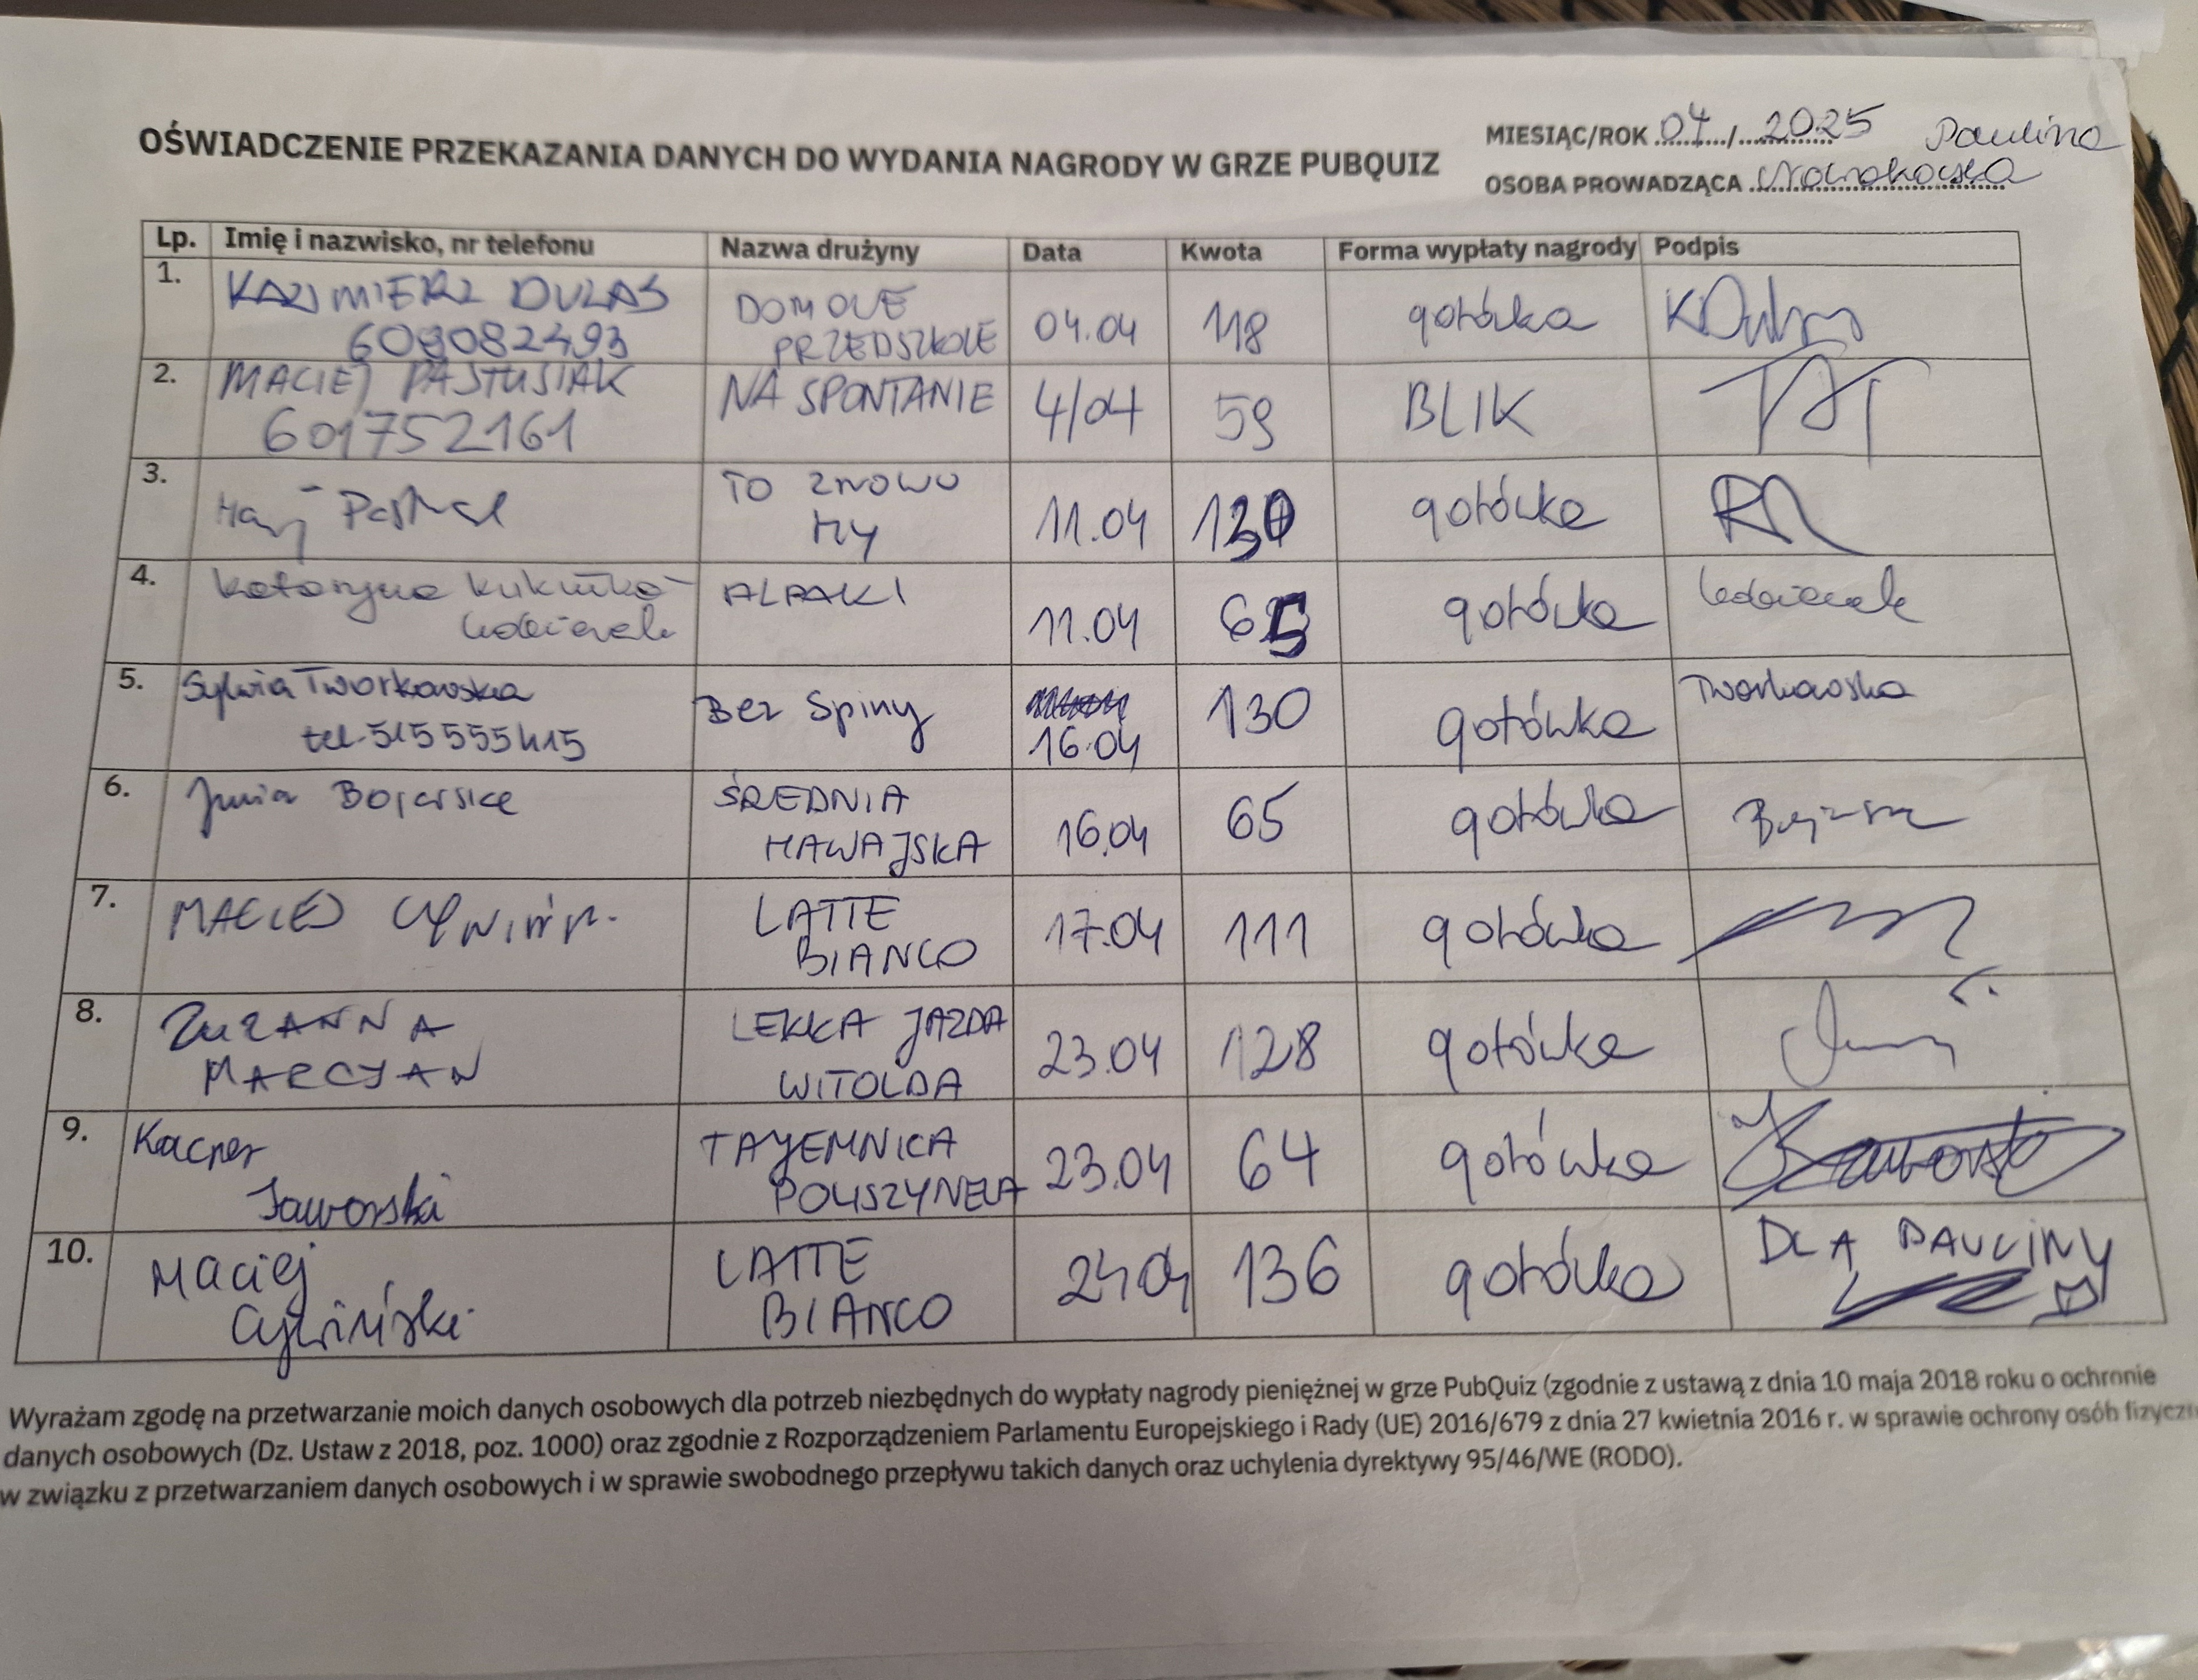 OŚWIADCZENIE PRZEKAZANIA DANYCH DO WYDANIA NAGRODY W GRZE PUBQUIZ
MIESIĄC/ROK 04/2025
OSOBA PROWADZĄCA Paulina
Lp. Imię i nazwisko, nr telefonu Nazwa drużyny Data Kwota Forma wypłaty nagrody Podpis
1. KAZIMIERZ DOMOWE 04.04 118 gotówka
609082493 PRZEDSZKOLE
2. MACIEJ PASTUSIAK NA SPONTANIE 4/04 59 BLIK
601752161
3. TO ZNOWU 11.04 130 gotówka
MY
4. Katarzyna ALPAKI 11.04 65 gotówka
5. Sylwia Tworkowska Bez Spiny 16.04 130 gotówka Tworkowska
tel. 515555415
6. ŚREDNIA 16.04 65 gotówka
HAWAJSKA
7. MACIEJ LATTE 17.04 111 gotówka
BIANCO
8. ZUZANNA LEKKA JAZDA 23.04 128 gotówka
MARCJAN WITOLDA
9. Kacper TAJEMNICA 23.04 64 gotówka
Jaworski POLISZYNELA
10. Maciej LATTE 24.04 136 gotówka DLA PAULINY
Cywiński BIANCO
Wyrażam zgodę na przetwarzanie moich danych osobowych dla potrzeb niezbędnych do wypłaty nagrody pieniężnej w grze PubQuiz (zgodnie z ustawą z dnia 10 maja 2018 roku o ochronie
danych osobowych (Dz. Ustaw z 2018, poz. 1000) oraz zgodnie z Rozporządzeniem Parlamentu Europejskiego i Rady (UE) 2016/679 z dnia 27 kwietnia 2016 r. w sprawie ochrony osób
w związku z przetwarzaniem danych osobowych i w sprawie swobodnego przepływu takich danych oraz uchylenia dyrektywy 95/46/WE (RODO).